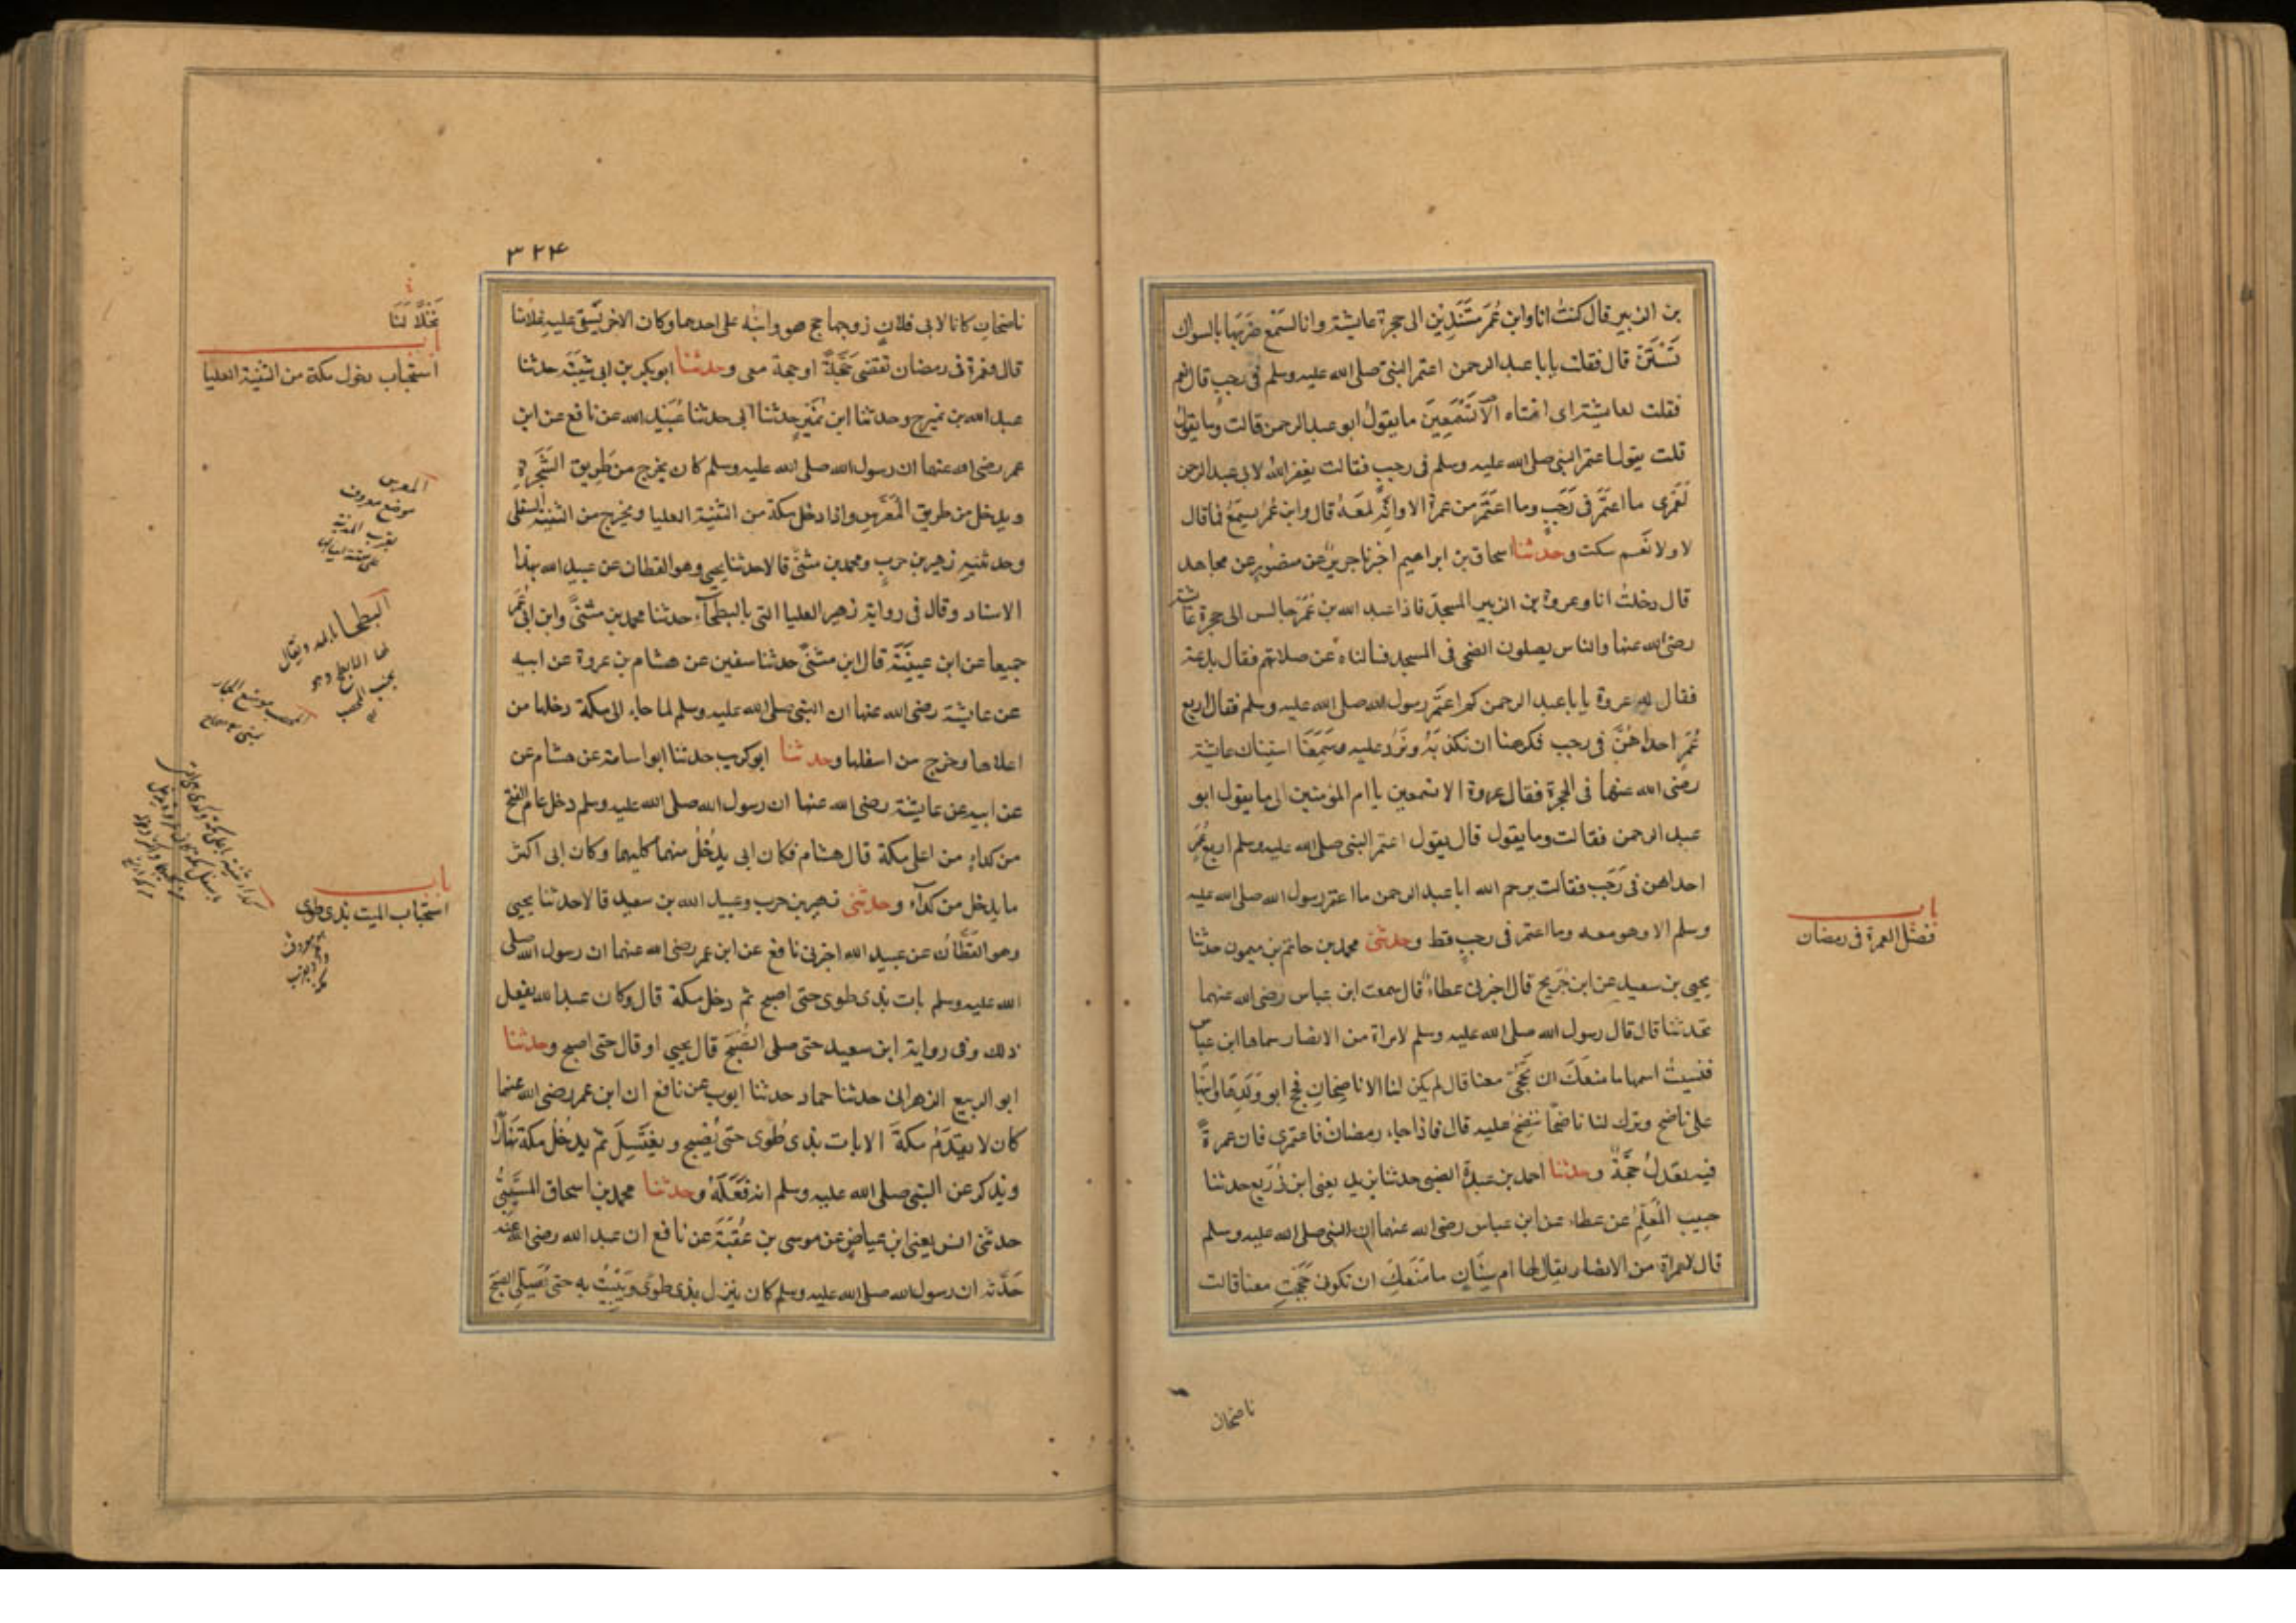 بن الزبير قال كنتُ انا وابن عُمَر مستندين الى حجرة عايشة وانا لنسمع ضربها بالسواك
تَسْتَنّ قال فقلت يا با عبد الرحمن اعتمر النبي صلى الله عليه وسلم فى رجب قال نعم
فقلت لعايشة اى امتاه الا تسمعين ما يقول ابو عبد الرحمن قالت وما يقول
قلت يقول اعتمر النبي صلى الله عليه وسلم فى رجب فقالت يغفر الله لابى عبد الرحمن
لعمرى ما اعتمر فى رجب وما اعتمر من عمرة الا وانه لمعه قال وابن عمر يسمع فما قال
لا ولا نعم سكت وحدثنا اسحاق بن ابراهيم اخبرنا جرير عن منصور عن مجاهد
قال دخلت انا وعروة بن الزبير المسجد فاذا عبد الله بن عمر جالس الى حجرة عائشة
رضى الله عنها والناس يصلون الضحى فى المسجد فسالناه عن صلاتهم فقال بدعة
فقال له عروة يا با عبد الرحمن كم اعتمر رسول الله صلى الله عليه وسلم فقال اربع
عُمَرٍ احداهُنَّ فى رجب فكرهنا ان نكذبه ونرد عليه وسمعنا استنان عايشة
رضى الله عنها فى الحجرة فقال عروة الا تسمعين يا ام المؤمنين الى ما يقول ابو
عبد الرحمن فقالت وما يقول قال يقول اعتمر النبي صلى الله عليه وسلم اربع عُمَرٍ
احداهن فى رجب فقالت يرحم الله ابا عبد الرحمن ما اعتمر رسول الله صلى الله عليه
وسلم الا وهو معه وما اعتمر فى رجب قط وحدثنى محمد بن حاتم بن ميمون حدثنا
يحيى بن سعيد عن ابن جريج قال اخبرنى عطاء قال سمعت ابن عباس رضى الله عنهما
يحدثنا قال قال رسول الله صلى الله عليه وسلم لامراة من الانصار سماها ابن عباس
فنسيت اسمها ما منعك ان تحجى معنا قال لم يكن لنا الا ناضحان فحج ابو ولدها وابنها
على ناضح وترك لنا ناضحا ننضح عليه قال فاذا جاء رمضان فاعتمرى فان عمرة
فيه تعدل حجة وحدثنا احمد بن عبدة الضبى حدثنا يزيد يعنى ابن زريع حدثنا
حبيب المعلم عن عطاء عن ابن عباس رضى الله عنهما ان النبي صلى الله عليه وسلم
قال لامراة من الانصار يقال لها ام سنان ما منعك ان تكونى حججت معنا قالت
باب
فضل العمرة فى رمضان
ناضحان
٣٢۴
ناضحان كانا لابى فلان زوجها حج هو وابنه على احدهما وكان الاخر يسقى عليه غلامنا
قال فعمرة فى رمضان تقضى حَجَّةً او حجة معى وحدثنا ابو بكر بن ابى شيبة حدثنا
عبد الله بن نمير ح وحدثنا ابن نمير حدثنا ابى حدثنا عبيد الله عن نافع عن ابن
عمر رضى الله عنهما ان رسول الله صلى الله عليه وسلم كان يخرج من طريق الشجرة
ويدخل من طريق المعرس واذا دخل مكة من الثنية العليا ويخرج من الثنية السفلى
وحدثنيه زهير بن حرب ومحمد بن مثنى قالا حدثنا يحيى وهو القطان عن عبيد الله بهذا
الاسناد وقال فى رواية زهير العليا التى بالبطحآء حدثنا محمد بن مثنى وابن ابى عُمَر
جميعا عن ابن عيينة قال ابن مثنى حدثنا سفين عن هشام بن عروة عن ابيه
عن عايشة رضى الله عنها ان النبي صلى الله عليه وسلم لما جاء الى مكة دخلها من
اعلاها وخرج من اسفلها وحدثنا ابو كريب حدثنا ابو اسامة عن هشام عن
عن ابيه عن عايشة رضى الله عنها ان رسول الله صلى الله عليه وسلم دخل عام الفتح
من كداء من اعلى مكة قال هشام فكان ابى يدخل منهما كليهما وكان ابى اكثر
ما يدخل من كدآء وحدثنى زهير بن حرب وعبيد الله بن سعيد قالا حدثنا يحيى
وهو القطان عن عبيد الله اخبرنى نافع عن ابن عمر رضى الله عنهما ان رسول الله صلى
الله عليه وسلم بات بذى طوى حتى اصبح ثم دخل مكة قال وكان عبد الله يفعل
ذلك وفى رواية ابن سعيد حتى صلى الصبح قال يحيى او قال حتى اصبح وحدثنا
ابو الربيع الزهرانى حدثنا حماد حدثنا ايوب عن نافع ان ابن عمر رضى الله عنهما
كان لا يقدم مكة الا بات بذى طوى حتى يصبح ويغتسل ثم يدخل مكة نهارا
ويذكر عن النبي صلى الله عليه وسلم انه فعله وحدثنا محمد بن اسحاق المسيبى
حدثنى انس يعنى ابن عياض عن موسى بن عقبة عن نافع ان عبد الله رضى الله عنه
حدثه ان رسول الله صلى الله عليه وسلم كان ينزل بذى طوى ويبيت به حتى يصلى الصبح
نخلا لنا
باب
استحباب دخول مكة من الثنية العليا
المعرس
موضع معروف
بقرب المدينة
البطحا بالمد ويقال
لها الابطح وهو
بجنب المحصب
باب
استحباب المبيت بذى طوى